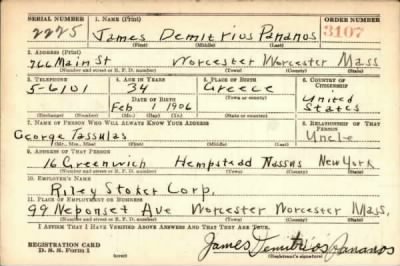 SERIAL NUMBER 1. NAME (Print) ORDER NUMBER
2225 James Demitrios Pananos 3107
(First) (Middle) (Last)
2. ADDRESS (Print)
766 Main St Worcester Worcester Mass
(Number and street or R. F. D. number) (Town) (County) (State)
3. TELEPHONE 4. AGE IN YEARS 5. PLACE OF BIRTH 6. COUNTRY OF CITIZENSHIP
5-6101 34 Greece United States
DATE OF BIRTH (Town or county)
Feb 1 1906
(Exchange) (Number) (Mo.) (Day) (Yr.) (State or country)
7. NAME OF PERSON WHO WILL ALWAYS KNOW YOUR ADDRESS 8. RELATIONSHIP OF THAT PERSON
George Tassulas Uncle
(Mr., Mrs., Miss) (First) (Middle) (Last)
9. ADDRESS OF THAT PERSON
16 Greenwich Hempstead Nassus New York
(Number and street or R. F. D. number) (Town) (County) (State)
10. EMPLOYER'S NAME
Riley Stoker Corp.
11. PLACE OF EMPLOYMENT OR BUSINESS
99 Neponset Ave Worcester Worcester Mass.
(Number and street or R. F. D. number) (Town) (County) (State)
I AFFIRM THAT I HAVE VERIFIED ABOVE ANSWERS AND THAT THEY ARE TRUE.
REGISTRATION CARD James Demitrios Pananos
D. S. S. Form 1 (over) (Registrant's signature)